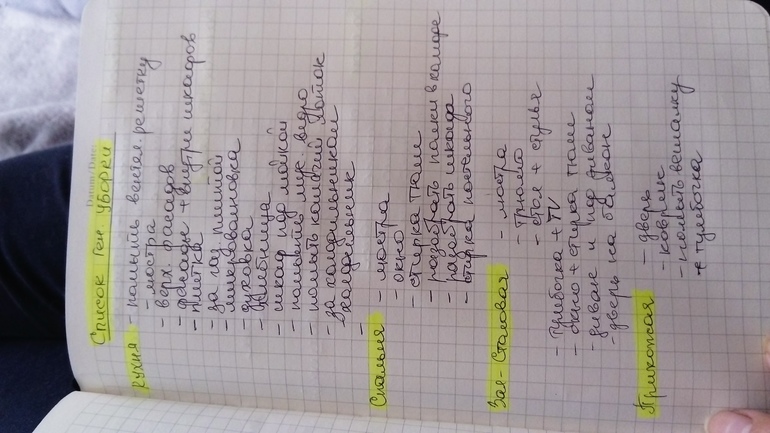 Список ген. уборки
Кухня
- помыть вентил. решетку
- люстра
- верх. фасадов
- фасады + внутри шкафов
- плитка
- за газ. плитой
- микроволновка
- духовка
- хлебница
- шкаф под мойкой
- помыть мус. ведро
- помыть кошачий лоток
- за холодильником
- холодильник
Спальня
- люстра
- окно
- стирка тюли
- разобрать полки в комоде
- разобрать шкафа
- стирка постельного
Зал-Столовая
- люстра
- трюмо
- стол + стулья
- тумбочка + TV
- окно + стирка тюли
- диван и под диваном
- дверь на балкон
Прихожая
- дверь
- коврик
- помыть вешалку
+ тумбочка